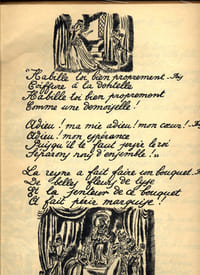 "Habille toi bien proprement
Coiffure à la dohtelle
Habille toi bien proprement
Comme une demoyselle !
Adieu ! ma mie adieu ! mon cœur !
Adieu ! mon espérance
Puisqu'il te faut servir le roi
Séparons noy d'ensemble ! "
La reyne a fait faire un bouquet
De belly fleurs de lyse
Et la senteur de ce bouquet
A fait périr marquise !